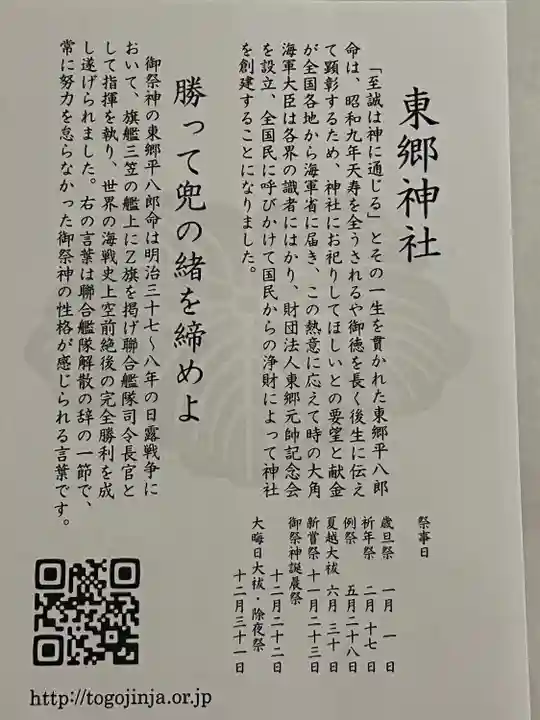 東郷神社
「至誠は神に通じる」とその一生を貫かれた東郷平八郎
命は、昭和九年天寿を全うされるや御徳を長く後生に伝え
て顕彰するため、神社にお祀りしてほしいとの要望と献金
が全国各地から海軍省に届き、この熱意に応えて時の大角
海軍大臣は各界の識者にはかり、財団法人東郷元帥記念会
を設立、全国民に呼びかけて国民からの浄財によって神社
を創建することになりました。
勝って兜の緒を締めよ
御祭神の東郷平八郎命は明治三十七〜八年の日露戦争に
おいて、旗艦三笠の艦上にZ旗を掲げ聯合艦隊司令長官と
して指揮を執り、世界の海戦史上空前絶後の完全勝利を成
し遂げられました。右の言葉は聯合艦隊解散の辞の一節で、
常に努力を怠らなかった御祭神の性格が感じられる言葉です。
祭事日
歳旦祭 一月 一日
祈年祭 二月 十七日
例祭 五月二十八日
夏越大祓 六月 三十日
新嘗祭 十一月二十三日
御祭神誕晨祭
十二月二十二日
大晦日大祓・除夜祭
十二月三十一日
http://togojinja.or.jp